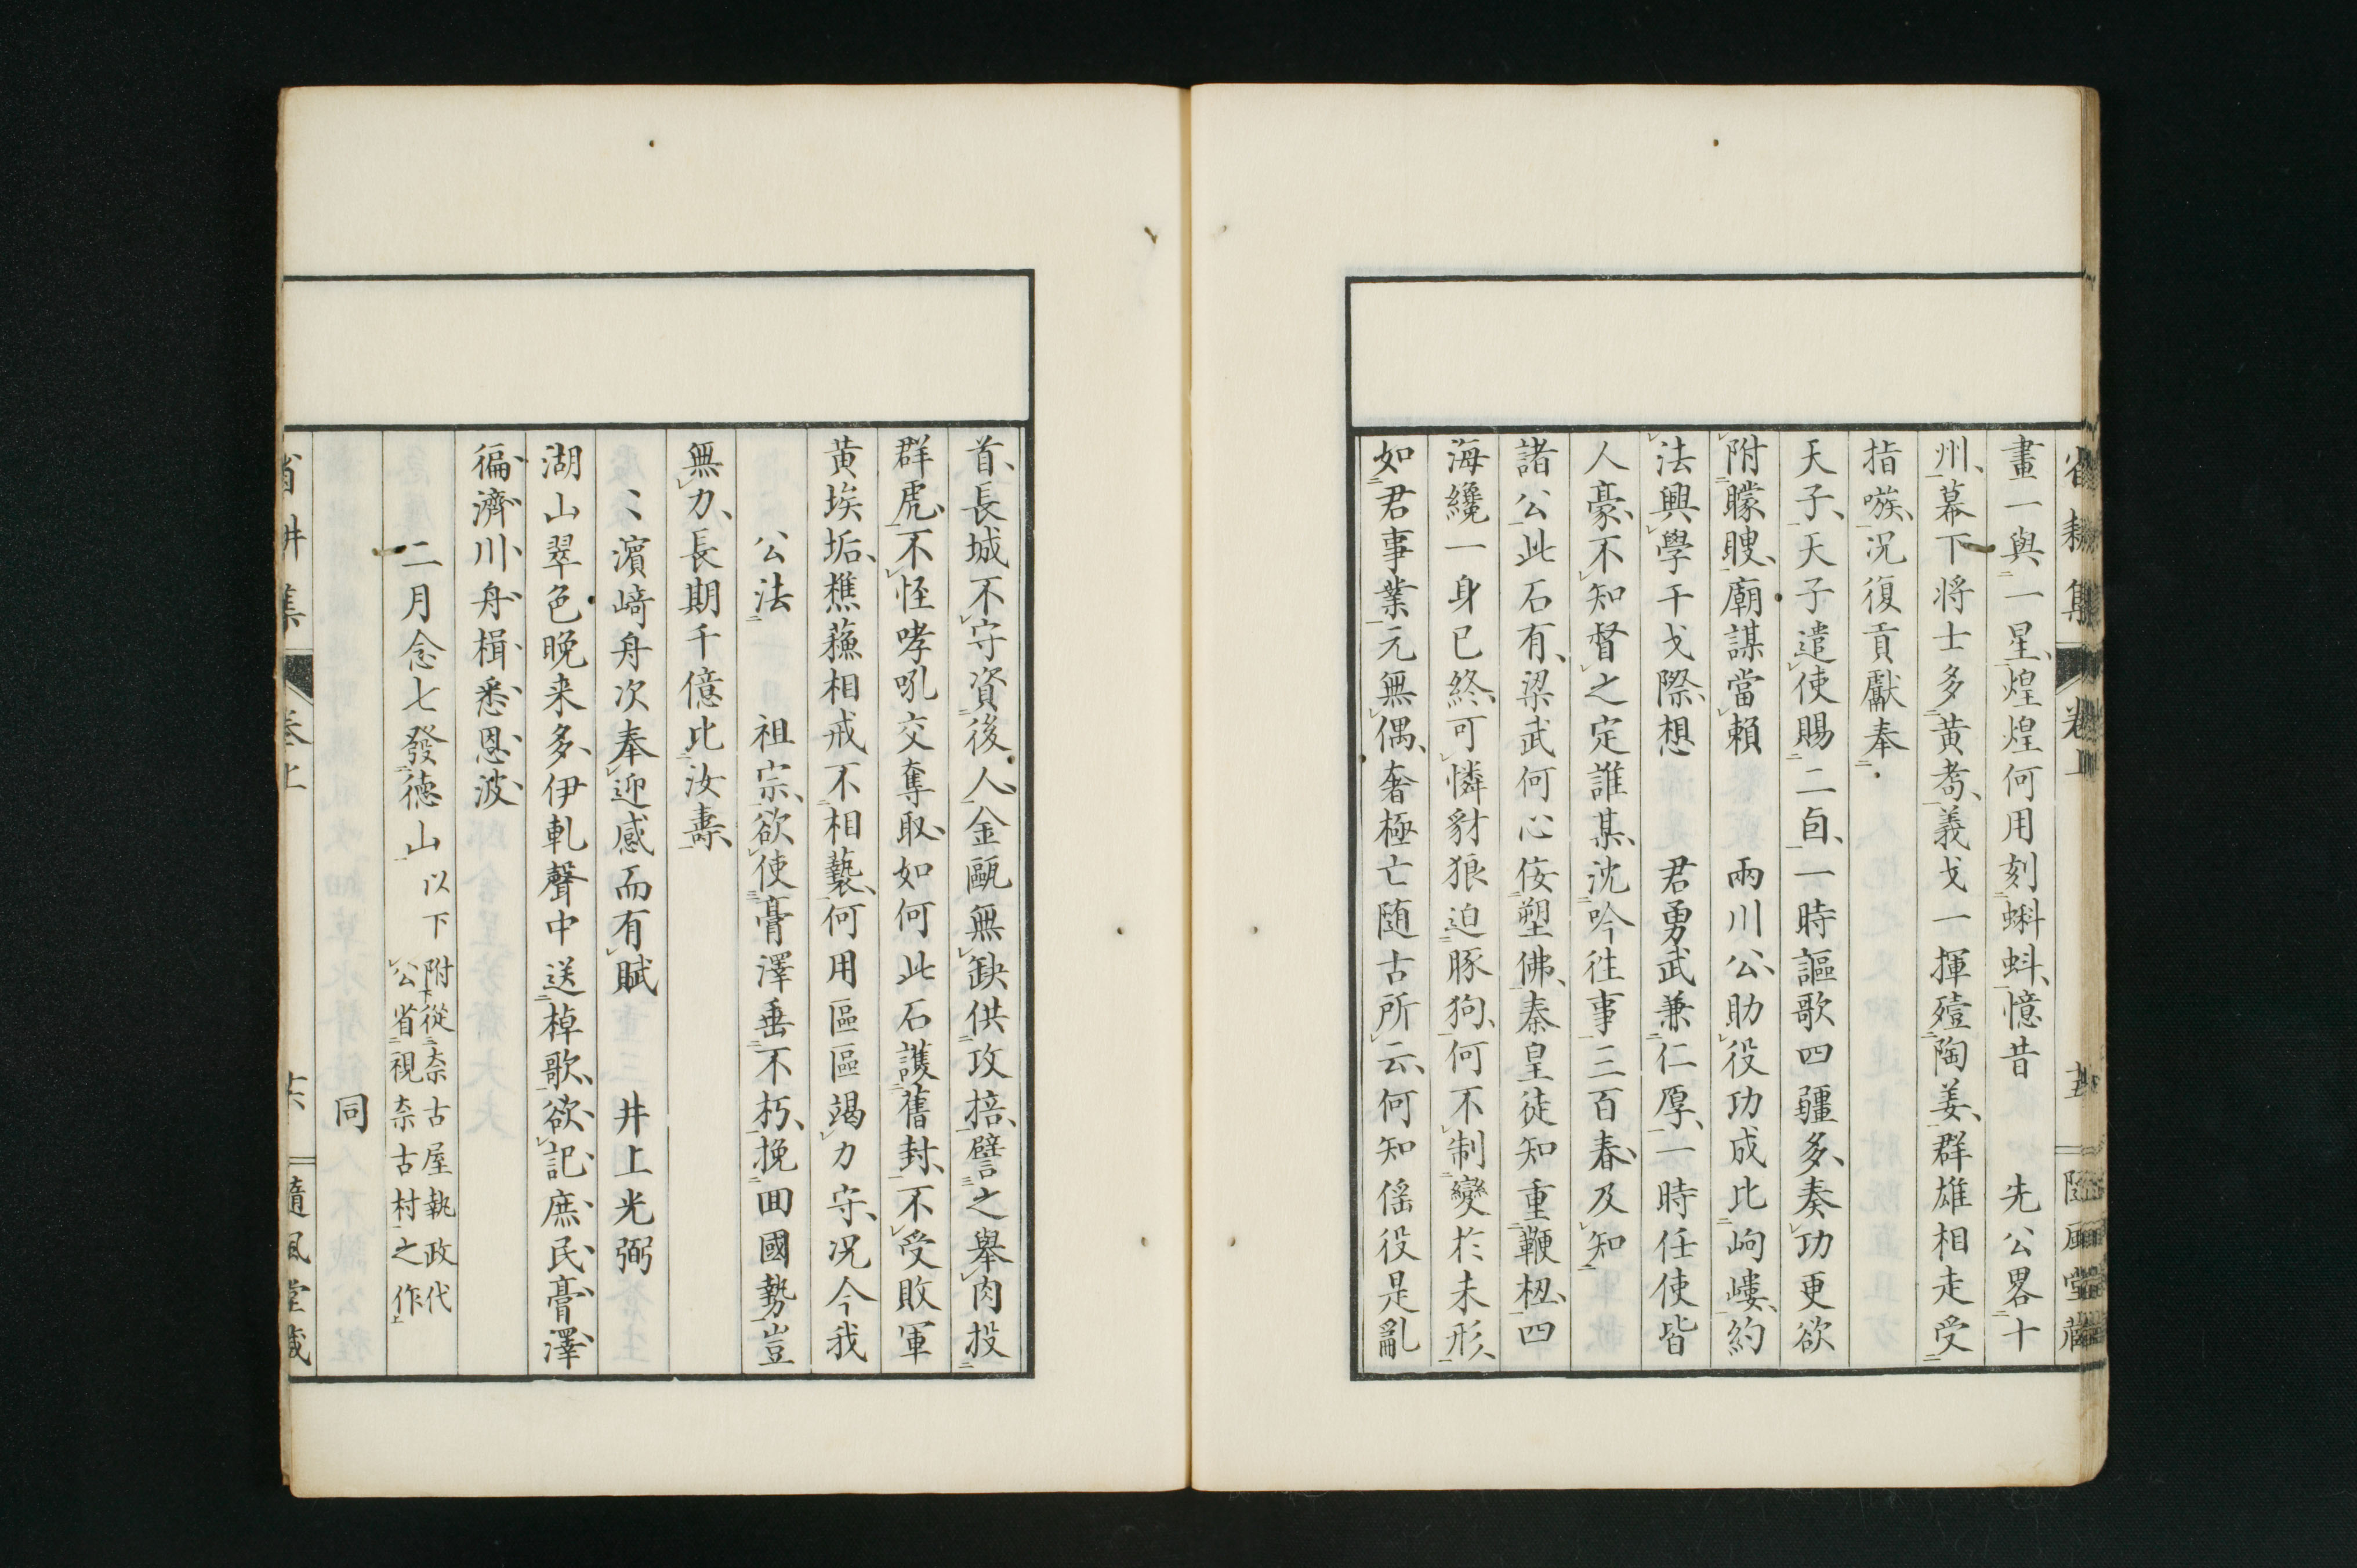 省耕集 卷上 隨風堂藏
畫一與一星、煌煌何用刻蝌蚪、憶昔 先公畧十
州、幕下将士多黄耇、義戈一揮殪陶姜、群雄相走受
指嗾、况復貢獻奉
天子、天子遣使賜二卣、一時謳歌四疆多、奏功更欲
附矇瞍、廟謀當賴 兩川公、助役功成比岣嶁、約
法興學干戈際、想 君勇武兼仁厚、一時任使皆
人豪、不知督之定誰某、沈吟往事三百春、及知
諸公此石有、梁武何心侫塑佛、秦皇徒知重鞭杻、四
海纔一身已終、可憐豺狼迫豚狗、何不制變於未形、
如君事業元無偶、奢極亡随古所云、何知徭役是亂
首、長城不守資後人、金甌無缺供攻掊、譬之舉肉投
群虎、不怪哮吼交奪取、如何此石護舊封、不受敗軍
黄埃垢、樵蘓相戒不相褻、何用區區竭力守、况今我
公法 祖宗、欲使膏澤垂不朽、挽囬國勢豈
無力、長期千億比汝壽、
濵﨑舟次奉迎感而有賦 井上光弼
湖山翠色晚来多、伊軋聲中送棹歌、欲記庶民膏澤
徧、濟川舟楫悉恩波
二月念七發德山 以下附從奈古屋執政代公省視奈古村之作
同
省耕集 卷上 隨風堂藏